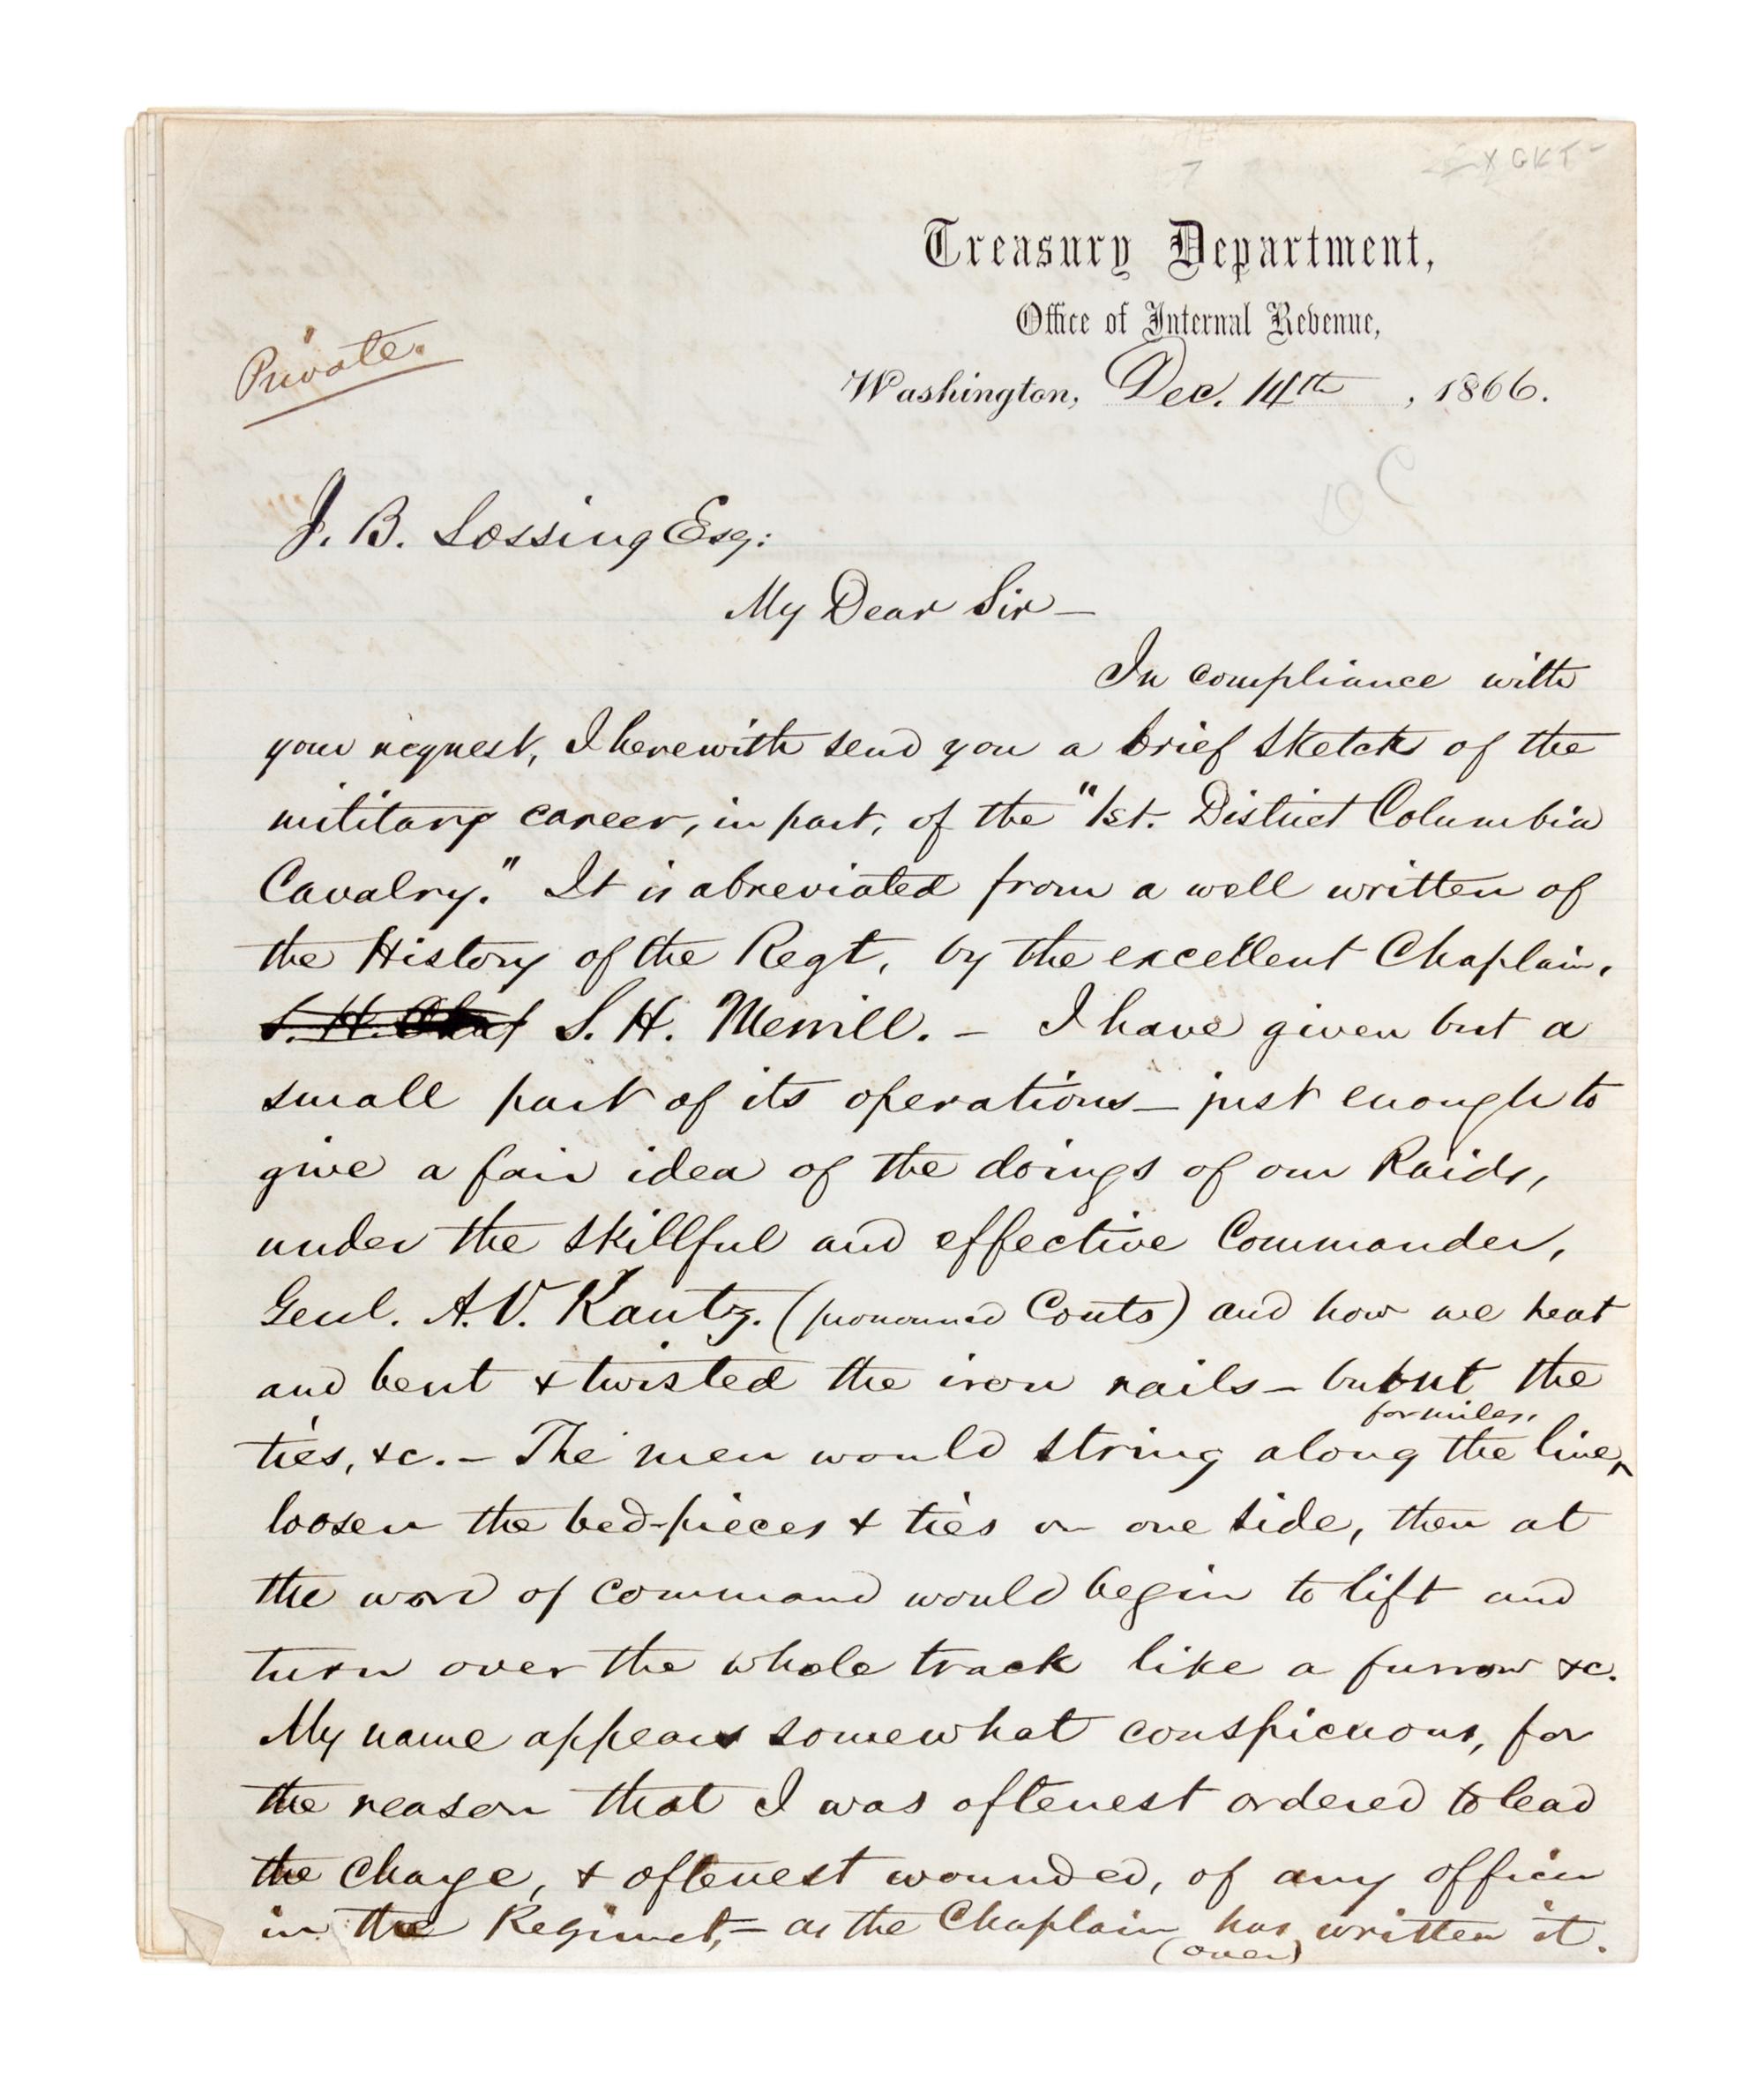 X GKT -
Treasury Department,
Office of Internal Revenue,
Private.
Washington, Dec. 14th, 1866.
J. B. Lossing Esq:
My Dear Sir —
In compliance with
your request, I herewith send you a brief sketch of the
military career, in part, of the "1st. District Columbia
Cavalry." It is abreviated from a well written of
the History of the Regt, by the excellent Chaplain,
S. H. Merrill. — I have given but a
small part of its operations — just enough to
give a fair idea of the doings of our Raids,
under the skillful and effective Commander,
Genl. A. V. Kautz. (pronounced Couts) and how we heat
and bent & twisted the iron rails — the
for miles,
ties, &c. — The men would string along the line,
loosen the bed-pieces & ties on one side, then at
the word of command would begin to lift and
turn over the whole track like a furrow &c.
My name appears somewhat conspicuous, for
the reason that I was oftenest ordered to lead
the charge, & oftenest wounded, of any officer
in the Regiment, — as the Chaplain has written it.
(over)